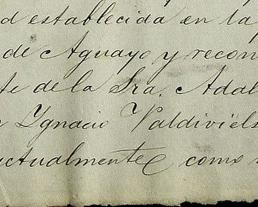 d establecida en la p
de Aguayo y recon
te de la Sra. Adal
Ygnacio Valdiviels
actualmente como